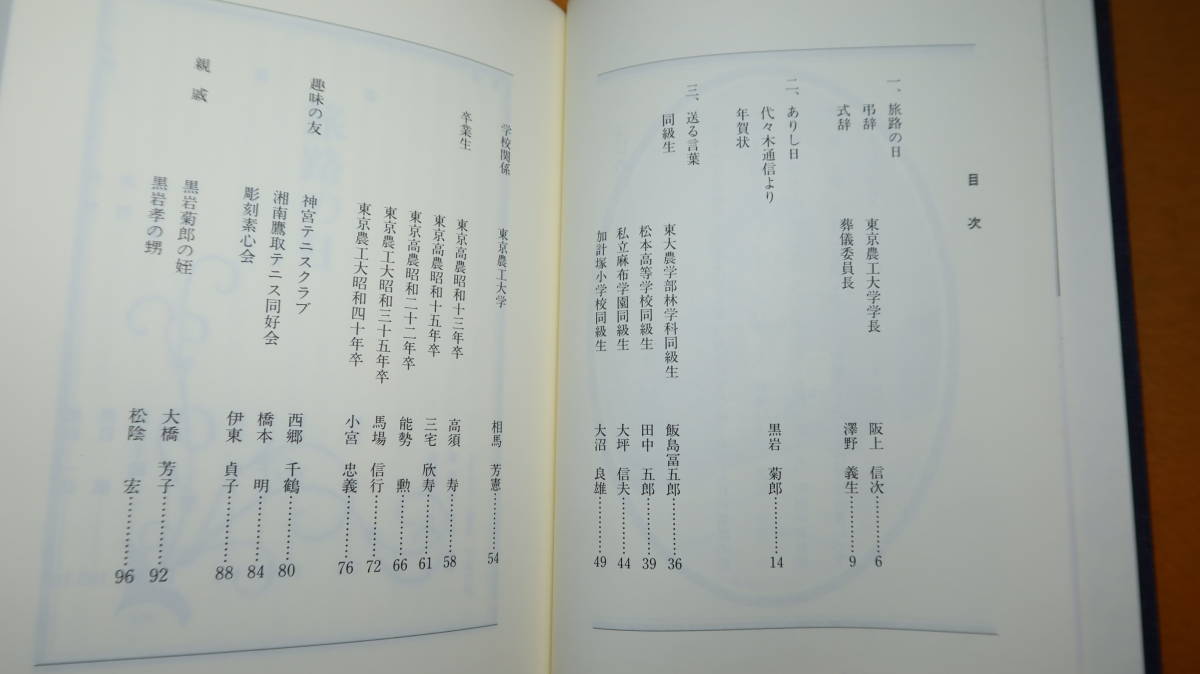 目次
一、旅路の日
弔辞 東京農工大学学長 阪上 信次…………6
式辞 葬儀委員長 澤野 義生…………9
二、ありし日
代々木通信より 黒岩 菊郎…………14
年賀状
三、送る言葉
同級生 東大農学部林学科同級生 飯島冨五郎…………36
松本高等学校同級生 田中 五郎…………39
私立麻布学園同級生 大坪 信夫…………44
加計塚小学校同級生 大沼 良雄…………49
学校関係 東京農工大学 相馬 芳憲…………54
卒業生 東京高農昭和十三年卒 高須 寿…………58
東京高農昭和十五年卒 三宅 欣寿…………61
東京高農昭和二十二年卒 能勢 勲…………66
東京農工大昭和三十五年卒 馬場 信行…………72
東京農工大昭和四十年卒 小宮 忠義…………76
趣味の友 神宮テニスクラブ 西郷 千鶴…………80
湘南鷹取テニス同好会 橋本 明…………84
彫刻素心会 伊東 貞子…………88
親戚 黒岩菊郎の姪 大橋 芳子…………92
黒岩孝の甥 松陰 宏…………96